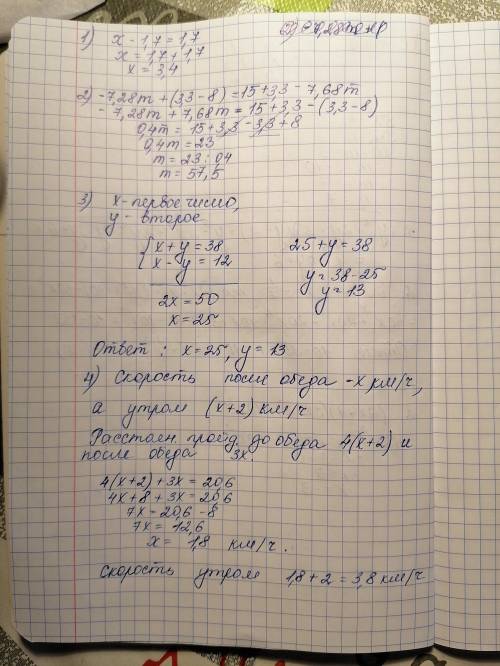 1) x - 1,7 = 1,7
x = 1,7 + 1,7
x = 3,4
2) -7,28m + (3,3 - 8) = 15 + 3,3 - 7,68m
- 7,28m + 7,68m = 15 + 3,3 - (3,3 - 8)
0,4m = 15 + 3,3 - 3,3 + 8
0,4m = 23
m = 23 : 0,4
m = 57,5
3) x - первое число,
y - второе
{ x + y = 38
x - y = 12
2x = 50
x = 25
25 + y = 38
y = 38 - 25
y = 13
Ответ : x = 25, y = 13
4) Скорость после обеда - x км/ч,
а утром (x+2) км/ч
Расстоян. пройд. до обеда 4(x+2) и
после обеда 3x.
4(x+2) + 3x = 20,6
4x + 8 + 3x = 20,6
7x = 20,6 - 8
7x = 12,6
x = 1,8 км/ч.
Скорость утром 1,8 + 2 = 3,8 км/ч